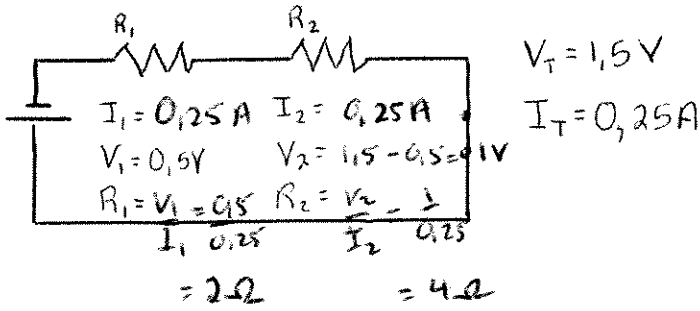 R₁ R₂
V_T = 1,5 V
I₁ = 0,25 A I₂ = 0,25 A I_T = 0,25 A
V₁ = 0,5V V₂ = 1,5 - 0,5 = 1V
R₁ = V₁/I₁ = 0,5/0,25 R₂ = V₂/I₂ = 1/0,25
= 2Ω = 4Ω